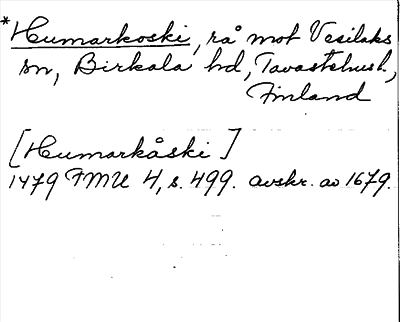 *Humarkoski, rå mot Vesilaks
sn, Birkala hd, Tavastehusl.,
Finland
[Humarkåski]
1479 FMU 4, s. 499. avskr. av 1679.